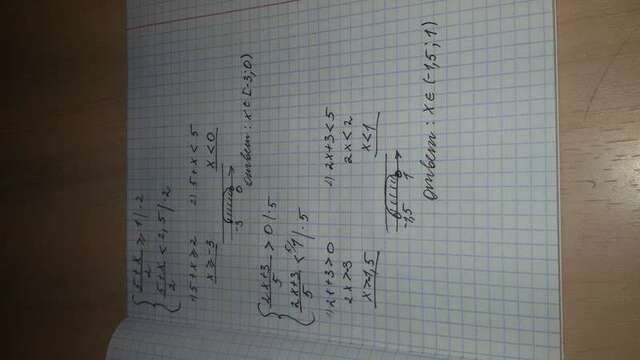 { (5+x)/2 ≥ 1 | ·2
{ (5+x)/2 < 2,5 | ·2
1) 5+x ≥ 2 2) 5+x < 5
x ≥ -3 x < 0
-3 0
ответ: x ∈ [-3; 0)
{ (2x+3)/5 > 0 | ·5
{ (2x+3)/5 < 1 | ·5
1) 2x+3 > 0 2) 2x+3 < 5
2x > -3 2x < 2
x > -1,5 x < 1
-1,5 1
ответ: x ∈ (-1,5; 1)